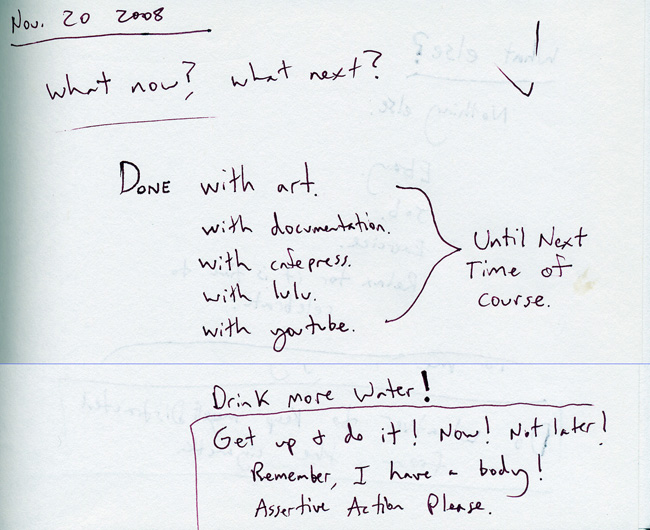 Nov. 20 2008
What now? What next?
DONE with art.
with documentation.
with cafepress.
with lulu.
with youtube.
Until Next
Time of
course.
Drink more water!
Get up & do it! Now! Not later!
Remember, I have a body!
Assertive Action Please.
What else?
Nothing else.
Ebay
Job.